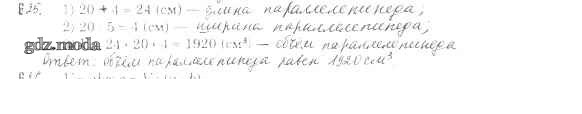 1) 20 + 4 = 24 (см) — длина параллелепипеда;
2) 20 : 5 = 4 (см) — ширина параллелепипеда;
gdz.moda 24 · 20 · 4 = 1920 (см³) — объём параллелепипеда
Ответ: объём параллелепипеда равен 1920 см³.